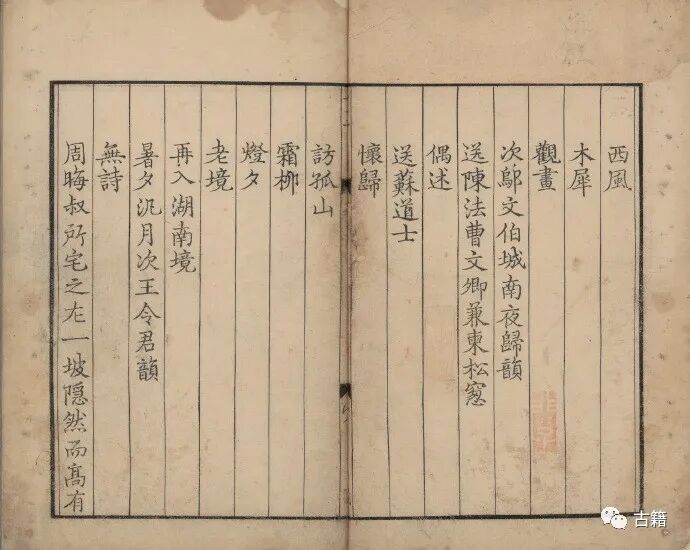 西風
木犀
觀畫
次鄔文伯城南夜歸韻
送陳法曹文卿兼柬松窻
偶述
送蘇道士
懷歸
訪孤山
霜柳
燈夕
老境
再入湖南境
暑夕汎月次王令君韻
無詩
周晦叔所宅之左一坡隱然而高有
古籍